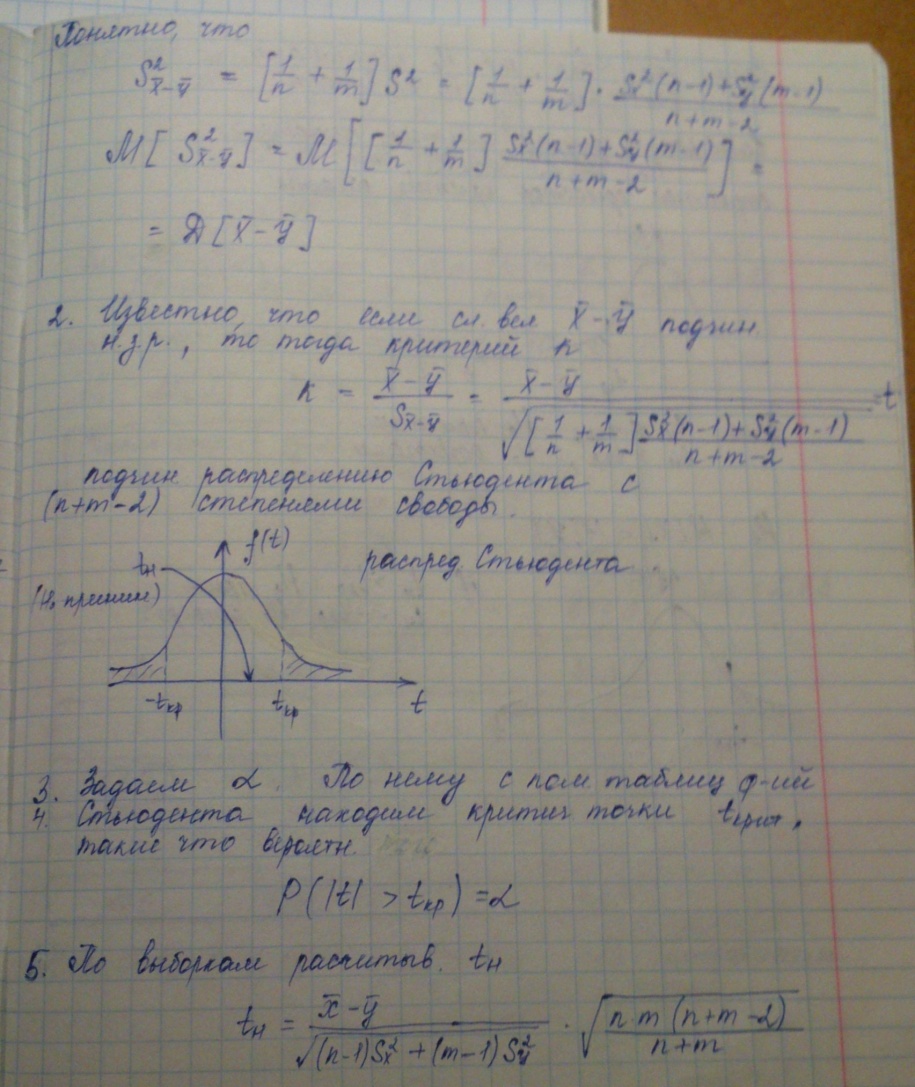 Понятно, что
S²x̄-ȳ = [1/n + 1/m] S² = [1/n + 1/m] · (Sx²(n-1) + Sy²(m-1))/(n+m-2)
M[S²x̄-ȳ] = M[[1/n + 1/m] (Sx²(n-1) + Sy²(m-1))/(n+m-2)] =
= D[x̄-ȳ]
2. Известно, что если сл. вел x̄-ȳ подчин
н.з.р., то тогда критерий к
к = (x̄-ȳ)/Sx̄-ȳ = (x̄-ȳ)/√([1/n + 1/m] (Sx²(n-1) + Sy²(m-1))/(n+m-2)) = t
подчин распределению Стьюдента с
(n+m-2) степенями свободы.
f(t)
tн
распред. Стьюдента
(H₀ приним)
-tкр tкр t
3. Задаем α. По нему с пом. таблиц ф-ий
4. Стьюдента находим критич точки tкрит,
такие что вероятн.
P(|t| > tкр) = α
5. По выборкам расчитыв. tн
tн = (x̄-ȳ)/√((n-1)Sx² + (m-1)Sy²) · √(n·m(n+m-2)/(n+m))